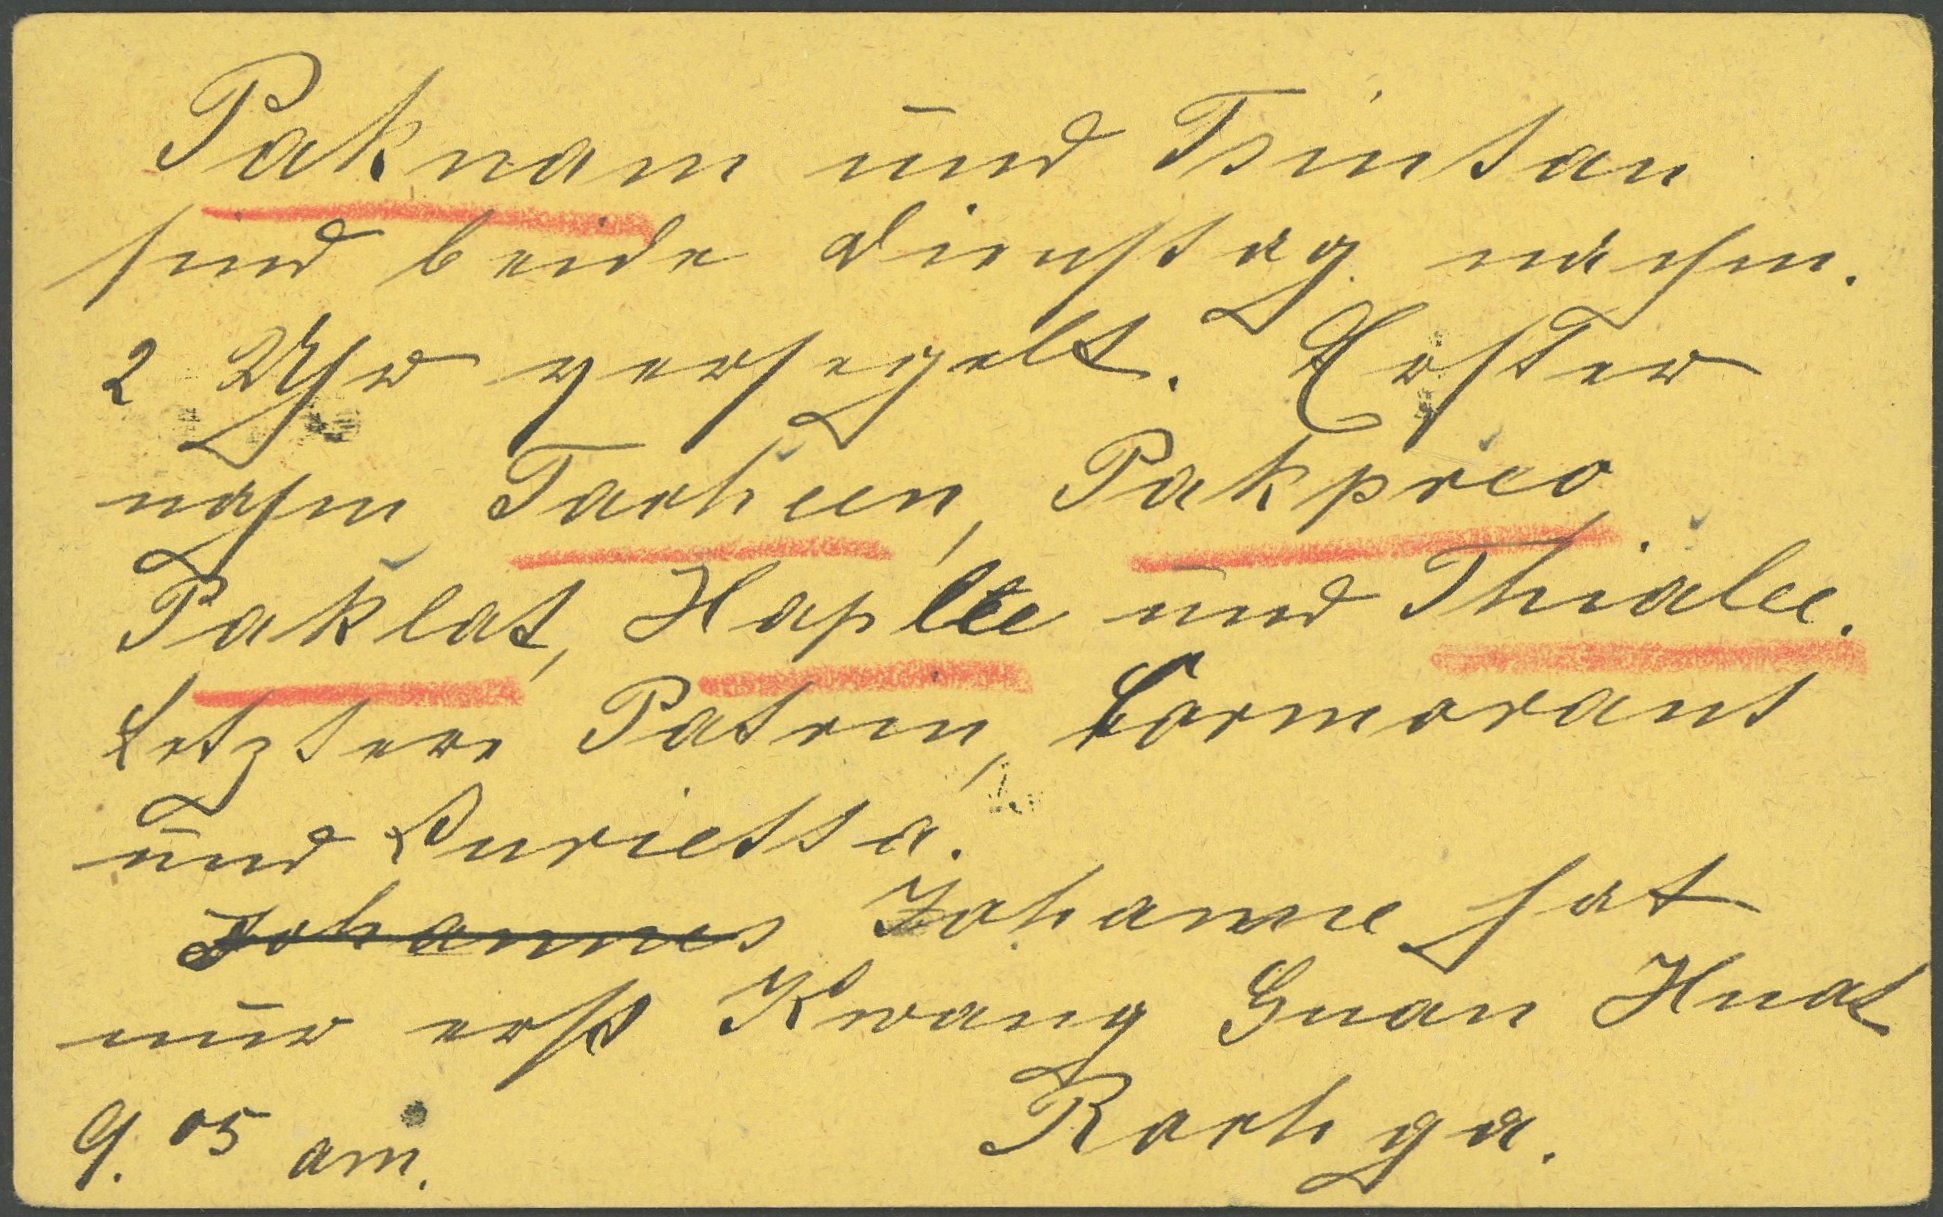 Paknam und Tsintau
sind beide Dienstag nachm.
2 Uhr versegelt. Erster
nahm Tacheen, Pakpreo
Paklat, Haplee und Thialee.
Letztere Patrin, Cormorant
und Lurietta.
Johannes Johanne hat
nur erst Kwang Guan Huat
9.05 am. Rochga.